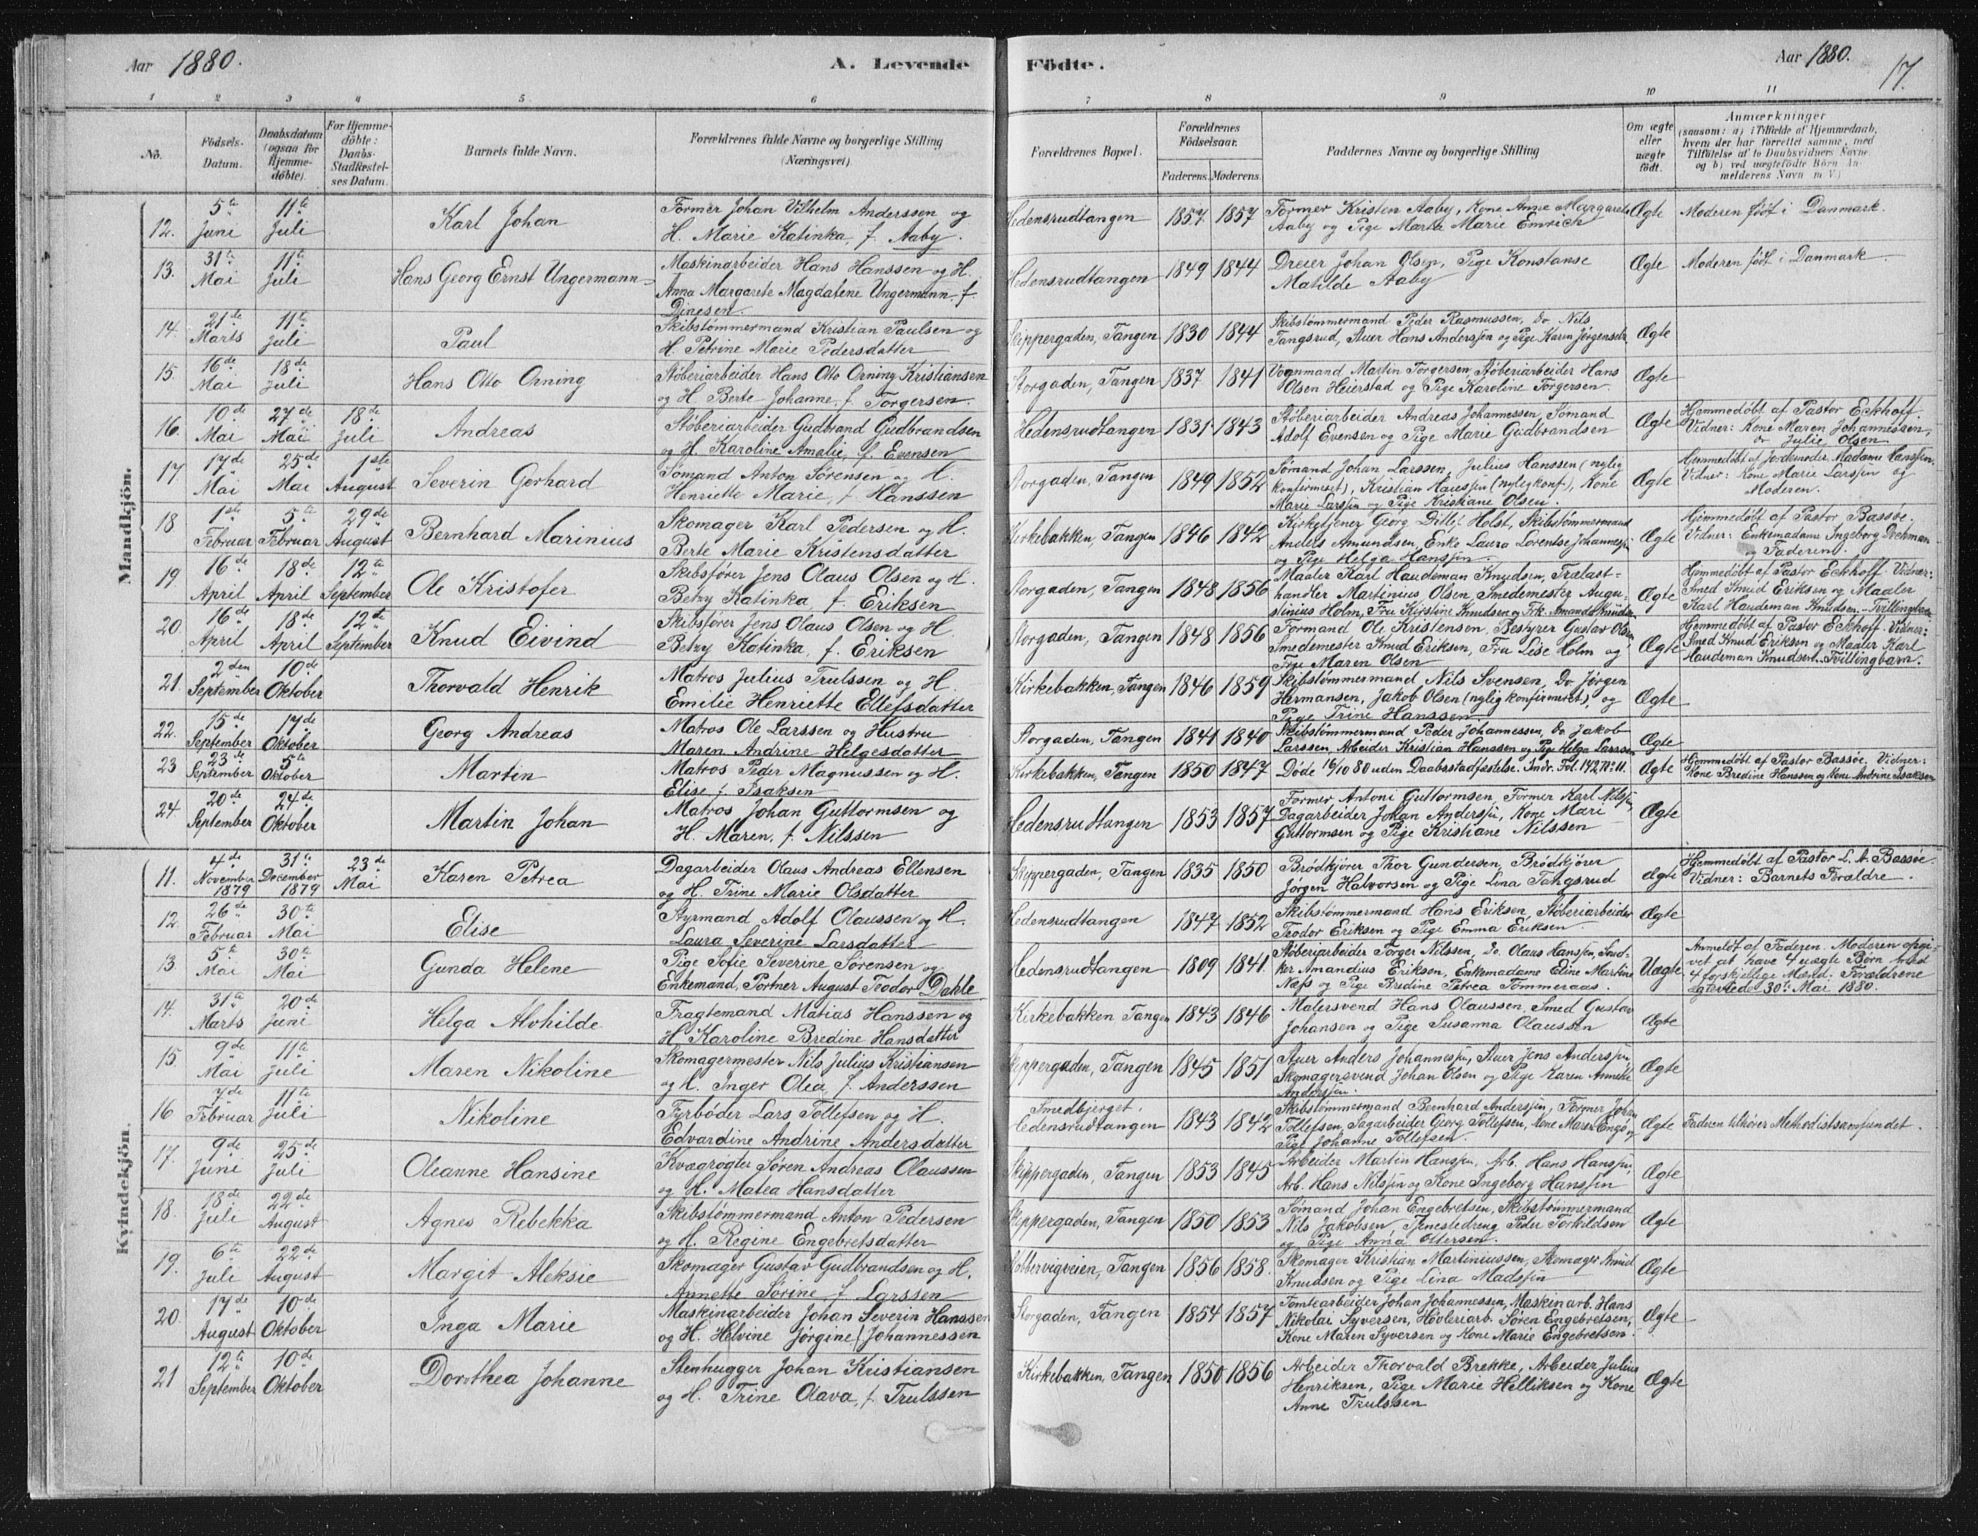 Aar 1880. A. Levende Födte. Aar 1880. 17.
1 2 3 4 5 6 7 8 9 10 11
No. Födsels-Datum. Daabsdatum (ogsaa for Hjemme-döbte). For Hjemme-döbte: Daabs-Stadfæstel-ses Datum. Barnets fulde Navn. Forældrenes fulde Navne og borgerlige Stilling (Næringsvei). Forældrenes Bopæl. Forældrenes Födselsaar. Faderens. Moderens. Faddernes Navne og borgerlige Stilling Om ægte eller uægte födt. Anmærkninger (saasom: a) i Tilfælde af Hjemmedaab, hvem der har forrettet samme, med Tilföielse af to Daabsvidners Navne og b) ved uægtefödte Börn An-melderens Navn m. V.)
Mandkjön.
12. 5te Juni 11te Juli Karl Johan Former Johan Vilhelm Anderssen og H. Marie Katinka, f. Aaby. Hedensrudtangen 1857 1857 Former Kristen Aaby, Kone Anne Margarete Aaby og Pige Martha Marie Emrich Ægte Moderen født i Danmark.
13. 31te Mai 11te Juli Hans Georg Ernst Ungermann Maskinarbeider Hans Hanssen og H. Anna Margarete Magdalene Ungermann f. Dinesen Hedensrudtangen 1849 1844 Dreier Johan Olsen, Pige Konstanse Matilde Aaby Ægte Moderen født i Danmark
14. 21de Marts 11te Juli Paul Skibstømmermand Kristian Paulsen og H. Petrine Marie Pedersdatter Skippergaden, Tangen 1830 1844 Skibstømmermand Peder Rasmussen, do Nils Tangsrud, Stuer Hans Anderssen og Pige Karin Jørgensen Ægte
15. 16de Mai 18de Juli Hans Otto Orning Støberiarbeider Hans Otto Orning Kristiansen og H Berte Johanne, f. Torgersen. Storgaden, Tangen 1837 1841 Vognmand Martin Torgersen, Støberiarbeider Hans Olsen Heierstad og Pige Karoline Torgersen. Ægte
16. 10de Mai 27de Mai 18de Juli Andreas Støberiarbeider Gudbrand Gudbrandsen og H. Karoline Amalie, f. Evensen Hedensrudtangen 1831 1843 Støberiarbeider Andreas Johannessen, Sømand Adolf Evensen og Pige Marie Gudbrandsen Ægte Hjemmedøbt af Pastor Eckhoff. Vidner: Kone Maren Johannessen, do Julie Olsen
17. 17de Mai 25de Mai 1ste August Severin Gerhard Sømand Anton Sørensen og H. Henriette Marie, f. Hanssen Storgaden, Tangen 1849 1852 Sømand Johan Larssen, Julius Hanssen (nylig konfirmeret), Kristian Hanssen (nylig konf), Kone Marie Larssen og Pige Kristiane Olsen. Ægte Hjemmedøbt af Jordemoder Madame Hanssen. Vidner: Kone Marie Larssen og Moderen.
18 1ste Februar 5te Februar 29de August Bernhard Marinius Skomager Karl Pedersen og H. Berte Marie Kristensdatter Kirkebakken, Tangen 1846 1842 Kirketjener Georg Ditlef Holst, Skibstømmermand Anders Amundsen, Enke Laura Lorentse Johannessen og Pige Helga Hanssen Ægte Hjemmedøbt af Pastor Bassøe. Vidner: Enkemadame Ingeborg Dechman og Faderen.
19 16de April 18de April 12te September Ole Kristofer Skibsfører Jens Olaus Olsen og H. Betzy Katinka f. Eriksen Storgaden, Tangen 1848 1856 Maaler Karl Haudeman Knudsen, Trælast-handler Martenius Olsen, Smedemester Augu-stinius Holm, Fru Kirstine Knudsen og Frk. Amanda Knudsen Ægte Hjemmedøbt af Pastor Eckhoff. Vidner: Smed Knud Eriksen og Maaler Karl Haudeman Knudsen. Tvillingbarn
20. 16de April 18de April 12te September Knud Eivind Skibsfører Jens Olaus Olsen og H Betzy Katinka, f. Eriksen Storgaden, Tangen 1848 1856 Formand Ole Kristensen, Bestyrer Gustav Olsen, Smedemester Knud Eriksen, Fru Lise Holm og Frue Maren Olsen Ægte Hjemmedøbt af Pastor Eckhoff. Vidner: Smed Knud Eriksen og Maaler Karl Haudeman Knudsen. Tvillingbarn.
21. 2den September 10de Oktober Thorvald Henrik Matros Julius Trulssen og H. Emilie Henriette Ellefsdatter Kirkebakken, Tangen 1846 1859 Skibstømmermand Nils Svensen, Do Jørgen Hermansen, Jakob Olsen (nylig konfirmeret), og Pige Trine Hanssen Ægte
22. 15de September 17de Oktober Georg Andreas Matros Ole Larssen og Hustru Maren Andrine Helgesdatter Storgaden, Tangen 1841 1840 Skibstømmermand Peder Johannessen, Do Jakob Larssen, Arbeider Kristian Hanssen og Pige Helga Larssen Ægte
23 23de September 5te Oktober Martin Matros Peder Magnussen og H. Elise f. Isaksen Kirkebakken, Tangen 1850 1847 Døde 16/10 80 uden Daabsstadfæstelse. Indr. Fol. 142 No 11. Ægte Hjemmedøbt af Pastor Bassøe. Vidner: Kone Bredine Hanssen og Kone Andrine Isaksen
24 20de September 24de Oktober Martin Johan Matros Johan Guttormsen og H. Maren, f. Nilssen Hedensrudtangen 1853 1857 Former Antoni Guttormsen, Former Karl Nilssen Dagarbeider Johan Anderssen, Kone Mari Guttormsen og Pige Kristiane Nilssen Ægte
Kvindekjön.
11. 4de November 1879 31te December 1879 23de Mai Karen Petrea Dagarbeider Olaus Andreas Ellensen og H. Trine Marie Olsdatter Skippergaden, Tangen 1835 1850 Brødkjører Thor Gundersen, Brødkjører Jørgen Halvorsen og Pige Lina Tangsrud Ægte Hjemmedøbt af Pastor L. A. Bassøe. Vidner: Barnets Forældre.
12. 26de Februar 30te Mai Elise Styrmand Adolf Olaussen og H. Laura Severine Larsdatter Hedensrudtangen 1847 1852 Skibstømmermand Hans Eriksen, Støberiarbeider Teodor Eriksen og Pige Emma Eriksen Ægte
13. 5te Mai 30te Mai Gunda Helene Pige Sofie Severine Sørensen og Enkemand, Portner August Teodor Dahle Hedensrudtangen 1809 1841. Støberiarbeider Torger Nilssen, Do. Olaus Hanssen, Snedker Amandius Eriksen, Enkemadame Eline Martine Næss og Pige Bredine Petrea Tømmeraas. Uægte Anmeldt af Faderen. Moderen opgi-vet at have 4 uægte Børn med 4 forskjellige Mænd. Forældrene ægteviede 30te Mai 1880.
14. 31te Marts 20de Juni Helga Alvhilde Fragtemand Matias Hanssen og H. Karoline Bredine Hansdatter Kirkebakken Tangen 1843 1846 Malersvend Hans Olaussen, Smed Gustav Johansen og Pige Susanna Olaussen Ægte
15. 9de Mai 11te Juli Maren Nikoline Skomagermester Nils Julius Kristiansen og H. Inger Olea f. Anderssen Skippergaden, Tangen 1845 1851 Stuer Anders Johannessen, Stuer Jens Anderssen Skomagersvend Johan Olsen og Pige Karen Annette Anderssen. Ægte
16 7de Februar 11te Juli Nikoline Fyrbøder Lars Tollefsen og H. Edvardine Andrine Andersdatter Smedbjerget. Hedensrudtangen 1843 1842 Skibstømmermand Bernhard Anderssen, Former Johan Tollefsen, Dagarbeider Georg Tollefsen, Kone Maren Engø og Pige Johanne Tollefsen. Ægte Faderen tilhører Methodistsamfundet.
17. 9de Juni 25de Juli Oleanne Hansine Kvægrøgter Søren Andreas Olaussen og H. Matea Hansdatter Skippergaden, Tangen 1853 1845 Arbeider Martin Hanssen, Arb. Hans Hanssen, Arb. Hans Nilssen og Kone Ingeborg Hanssen Ægte
18. 18de Juli 22de August Agnes Rebekka Skibstømmermand Anton Pedersen og H. Regine Engebretsdatter Skippergaden, Tangen 1850 1853 Sømand Johan Engebretsen, Skibstømmermand Nils Jakobsen, Tjenestedreng Peder Torkildsen og Pige Anna Ottersen. Ægte
19. 6te Juli 22de August Margit Aleksie Skomager Gustav Gudbrandsen og H. Annette Sørine f. Larssen Tangen 1856 1858. Skomager Kristian Martiniussen, Skomager Knud Knudsen og Pige Lina Madssen Ægte
20. 17de August 10de Oktober Inga Marie Maskinarbeider Johan Severin Hanssen og H. Helvine Jørgine f. Johannessen Storgaden, Tangen 1854 1857 Tomtearbeider Johan Johannessen, Maskinarb. Hans Nikolai Syversen, Høvleriarb. Søren Engebretsen, Kone Maren Syversen og Kone Marie Engebretsen. Ægte
21 12te September 10de Oktober Dorothea Johanne Stenhugger Johan Kristiansen og H. Trine Olava, f. Trulssen Kirkebakken, Tangen 1850 1856 Arbeider Thorvald Brekke, Arbeider Julius Henriksen, Pige Marie Helliksen og Kone Anne Trulssen Ægte